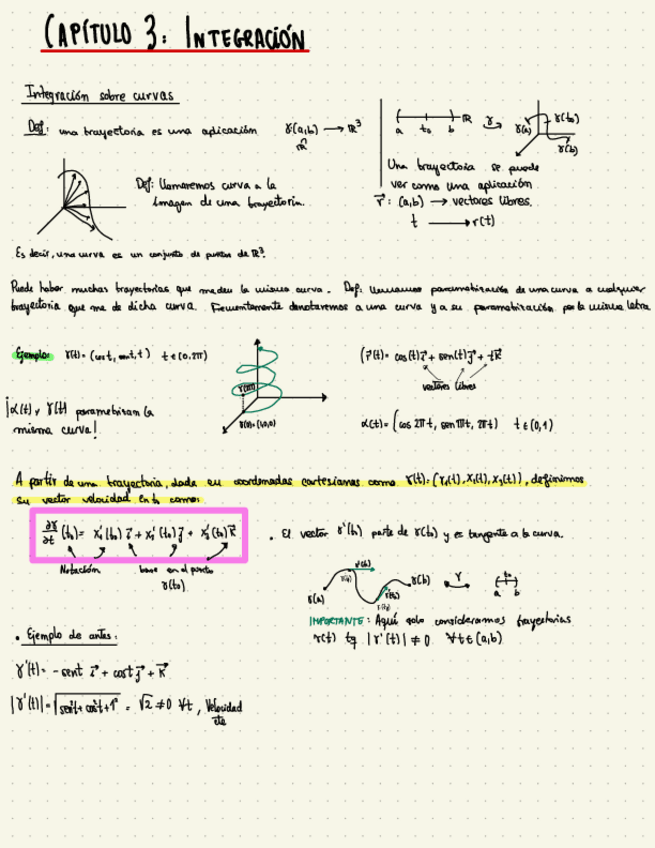 CAPÍTULO 3: INTEGRACIÓN
Integración sobre curvas
Def: una trayectoria es una aplicación γ(a,b) → ℝ³
ℝ
a t₀ b ℝ γ γ(a) γ(t₀) γ(b)
Una trayectoria se puede
ver como una aplicación
r⃗: (a,b) → vectores libres.
t → r(t)
Def: llamaremos curva a la
imagen de una trayectoria.
Es decir, una curva es un conjunto de puntos de ℝ³.
Puede haber muchas trayectorias que me den la misma curva. Def: llamamos parametrización de una curva a cualquier
trayectoria que me de dicha curva. Frecuentemente denotaremos a una curva y a su parametrización por la misma letra
Ejemplo: γ(t) = (cos t, sen t, t) t ∈ (0, 2π)
(r⃗(t) = cos(t) i⃗ + sen(t) j⃗ + t k⃗
vectores libres
¡α(t) y γ(t) parametrizan la
misma curva!
γ(0) = (1,0,0)
α(t) = (cos 2πt, sen 2πt, 2πt) t ∈ (0,1)
A partir de una trayectoria, dada en coordenadas cartesianas como γ(t) = (x₁(t), x₂(t), x₃(t)), definimos
su vector velocidad en t₀ como:
∂γ/∂t (t₀) = x₁'(t₀) i⃗ + x₂'(t₀) j⃗ + x₃'(t₀) k⃗
Notación base en el punto
γ(t₀)
• El vector γ'(t₀) parte de γ(t₀) y es tangente a la curva.
γ(a) γ'(t₀) γ(t₀) γ(b) γ a t₀ b
IMPORTANTE: Aquí solo consideramos trayectorias
γ(t) tq |γ'(t)| ≠ 0 ∀t ∈ (a,b)
• Ejemplo de antes:
γ'(t) = -sen t i⃗ + cos t j⃗ + k⃗
|γ'(t)| = √(sen²t + cos²t + 1²) = √2 ≠ 0 ∀t, Velocidad
cte